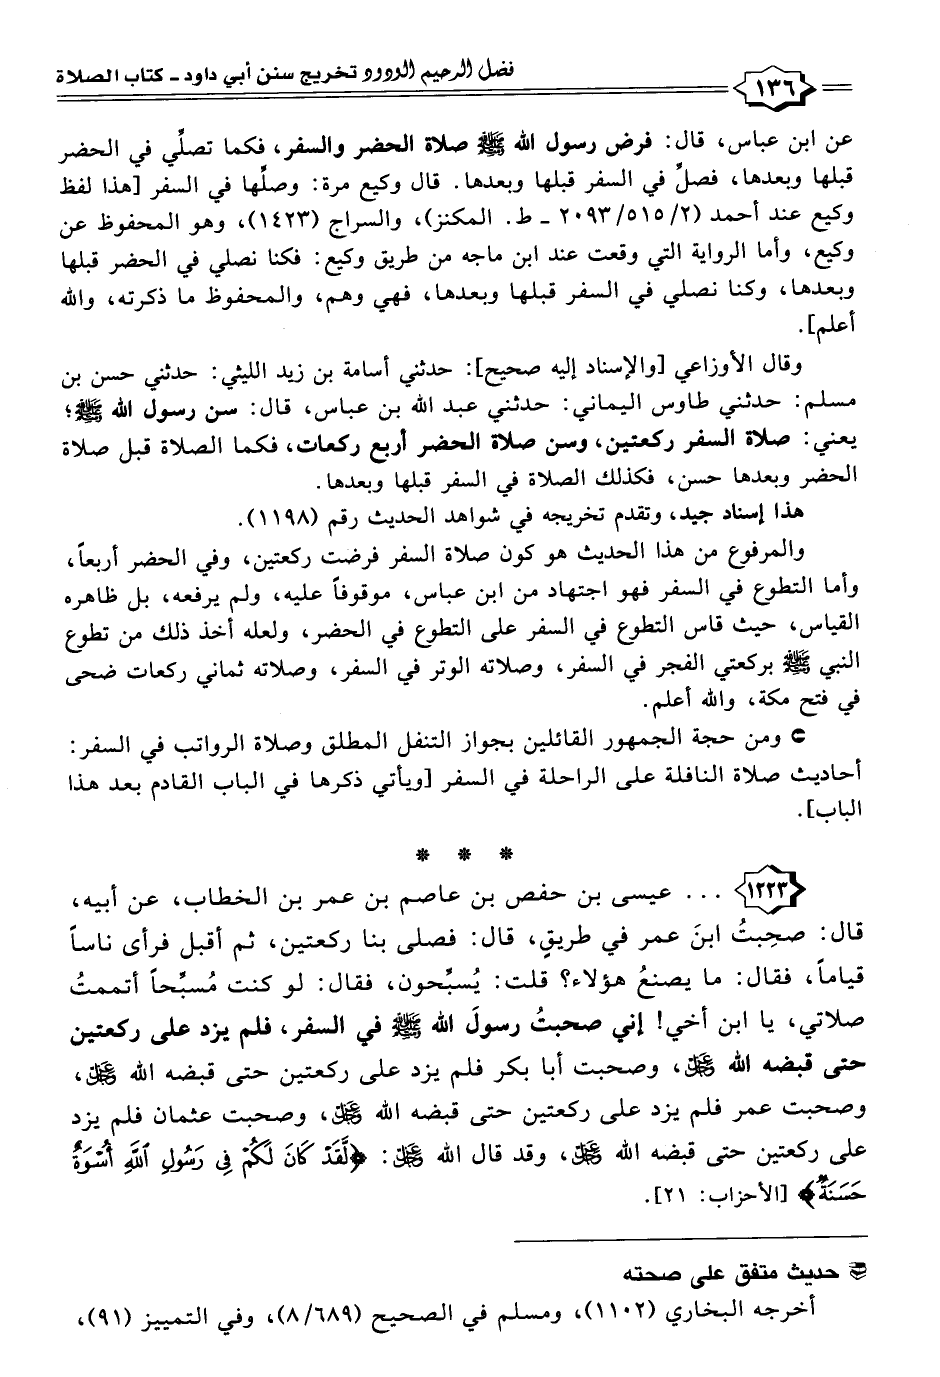 ١٣٦ فضل الرحيم الودود تخريج سنن أبي داود ـ كتاب الصلاة
عن ابن عباس، قال: فرض رسول الله ﷺ صلاة الحضر والسفر، فكما تصلِّي في الحضر
قبلها وبعدها، فصلِّ في السفر قبلها وبعدها. قال وكيع مرة: وصلِّها في السفر [هذا لفظ
وكيع عند أحمد (٢/٥١٥/٢٠٩٣ ـ ط. المكنز)، والسراج (١٤٢٣)، وهو المحفوظ عن
وكيع، وأما الرواية التي وقعت عند ابن ماجه من طريق وكيع: فكنا نصلي في الحضر قبلها
وبعدها، وكنا نصلي في السفر قبلها وبعدها، فهي وهم، والمحفوظ ما ذكرته، والله
أعلم].
وقال الأوزاعي [والإسناد إليه صحيح]: حدثني أسامة بن زيد الليثي: حدثني حسن بن
مسلم: حدثني طاوس اليماني: حدثني عبد الله بن عباس، قال: سن رسول الله ﷺ؛
يعني: صلاة السفر ركعتين، وسن صلاة الحضر أربع ركعات، فكما الصلاة قبل صلاة
الحضر وبعدها حسن، فكذلك الصلاة في السفر قبلها وبعدها.
هذا إسناد جيد، وتقدم تخريجه في شواهد الحديث رقم (١١٩٨).
والمرفوع من هذا الحديث هو كون صلاة السفر فرضت ركعتين، وفي الحضر أربعاً،
وأما التطوع في السفر فهو اجتهاد من ابن عباس، موقوفاً عليه، ولم يرفعه، بل ظاهره
القياس، حيث قاس التطوع في السفر على التطوع في الحضر، ولعله أخذ ذلك من تطوع
النبي ﷺ بركعتي الفجر في السفر، وصلاته الوتر في السفر، وصلاته ثماني ركعات ضحى
في فتح مكة، والله أعلم.
➲ ومن حجة الجمهور القائلين بجواز التنفل المطلق وصلاة الرواتب في السفر:
أحاديث صلاة النافلة على الراحلة في السفر [ويأتي ذكرها في الباب القادم بعد هذا
الباب].
* * *
١٢٢٣ ... عيسى بن حفص بن عاصم بن عمر بن الخطاب، عن أبيه،
قال: صحِبتُ ابنَ عمر في طريقٍ، قال: فصلى بنا ركعتين، ثم أقبل فرأى ناساً
قياماً، فقال: ما يصنعُ هؤلاء؟ قلت: يُسبِّحون، فقال: لو كنت مُسبِّحاً أتممتُ
صلاتي، يا ابن أخي! إني صحبتُ رسولَ الله ﷺ في السفر، فلم يزد على ركعتين
حتى قبضه الله ﷻ، وصحبت أبا بكر فلم يزد على ركعتين حتى قبضه الله ﷻ،
وصحبت عمر فلم يزد على ركعتين حتى قبضه الله ﷻ، وصحبت عثمان فلم يزد
على ركعتين حتى قبضه الله ﷻ، وقد قال الله ﷻ: ﴿لَّقَدْ كَانَ لَكُمْ فِي رَسُولِ ٱللَّهِ أُسْوَةٌ
حَسَنَةٌ﴾ [الأحزاب: ٢١].
حديث متفق على صحته
أخرجه البخاري (١١٠٢)، ومسلم في الصحيح (٨/٦٨٩)، وفي التمييز (٩١)،